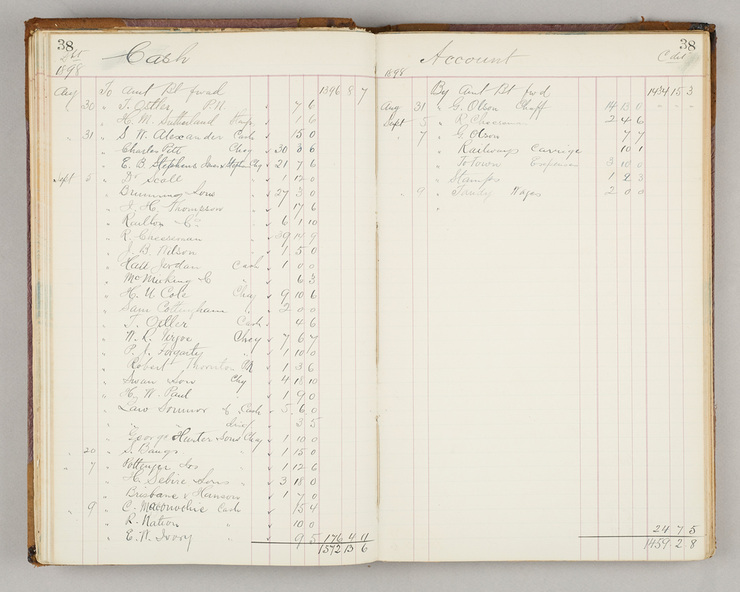 38
Cash
1898
Aug To Amt Bt fwd 1396 8 7
" 30 " T. Ostler P.N. 7 6
" H. M. Sutherland 1 6
" 31 " S. W. Alexander Cash 15 0
" Charles Pett Cheq 30 3 6
" E. B. Stephens 21 7 6
Sept 5 " Dr Scott 1 12 0
" Brunning Sons 27 3 0
" J. H. Thompson 17 6
" Railton Co 6 1 10
" R. Cheeseman 29 14 9
" J. B. Nelson 1 5 0
" Hall Jordan Cash 1 0 0
" McMeeking & C " 6 3
" H. U. Cole Cheq 9 10 6
" Sam Cottingham " 2 0 0
" T. Ostler Cash 4 6
" Cheq 7 6 7
" P. J. Fogarty " 1 10 0
" Robert Thornton PN 1 3 6
" Swan Sons Chq 4 18 10
" H. W. Paul 1 9 0
" Law Somner & C Cash 5 6 0
" " " 3 5
" George Hunter Sons Cheq 1 10 0
" 20 " S. Bangs 1 15 0
" 7 " Pottenger 1 12 6
" H. Sebire Sons " 3 18 0
" Brisbane & Hansom 1 7 0
" 9 " C. Cash 15 4
" R. Nation " 10 0
" E. W. Ivory " 9 5 176 4 11
1572 13 6
38
Account
1898
By Amt Bt fwd 1434 15 3
Aug 31 " G. Olson Chaff 14 13 0
Sept 5 " R. Cheeseman 2 4 6
" 7 " G Olson 7 7
" Railways Carriage 10 1
" To Town Expenses 3 10 0
" Stamps 1 2 3
" 9 " Wages 2 0 0
"
24 7 5
1459 2 8